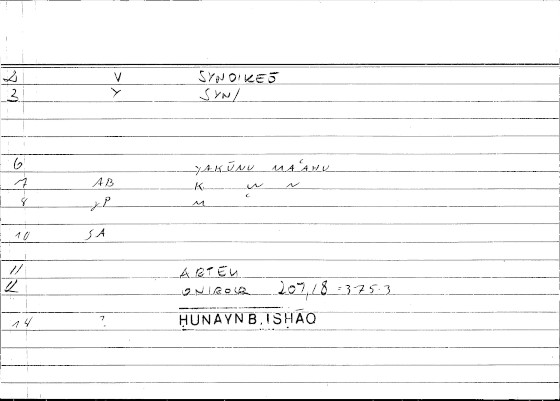 2 V SYNOIKEŌ
3 Y SYN/
6 YAKŪNU MAʿAHU
7 AB K W N
8 JP M ʿ
10 SA
11 ARTEM
12 ONIROCR 207,18 = 375.3
14 ? ḤUNAYN B. ISḤĀQ